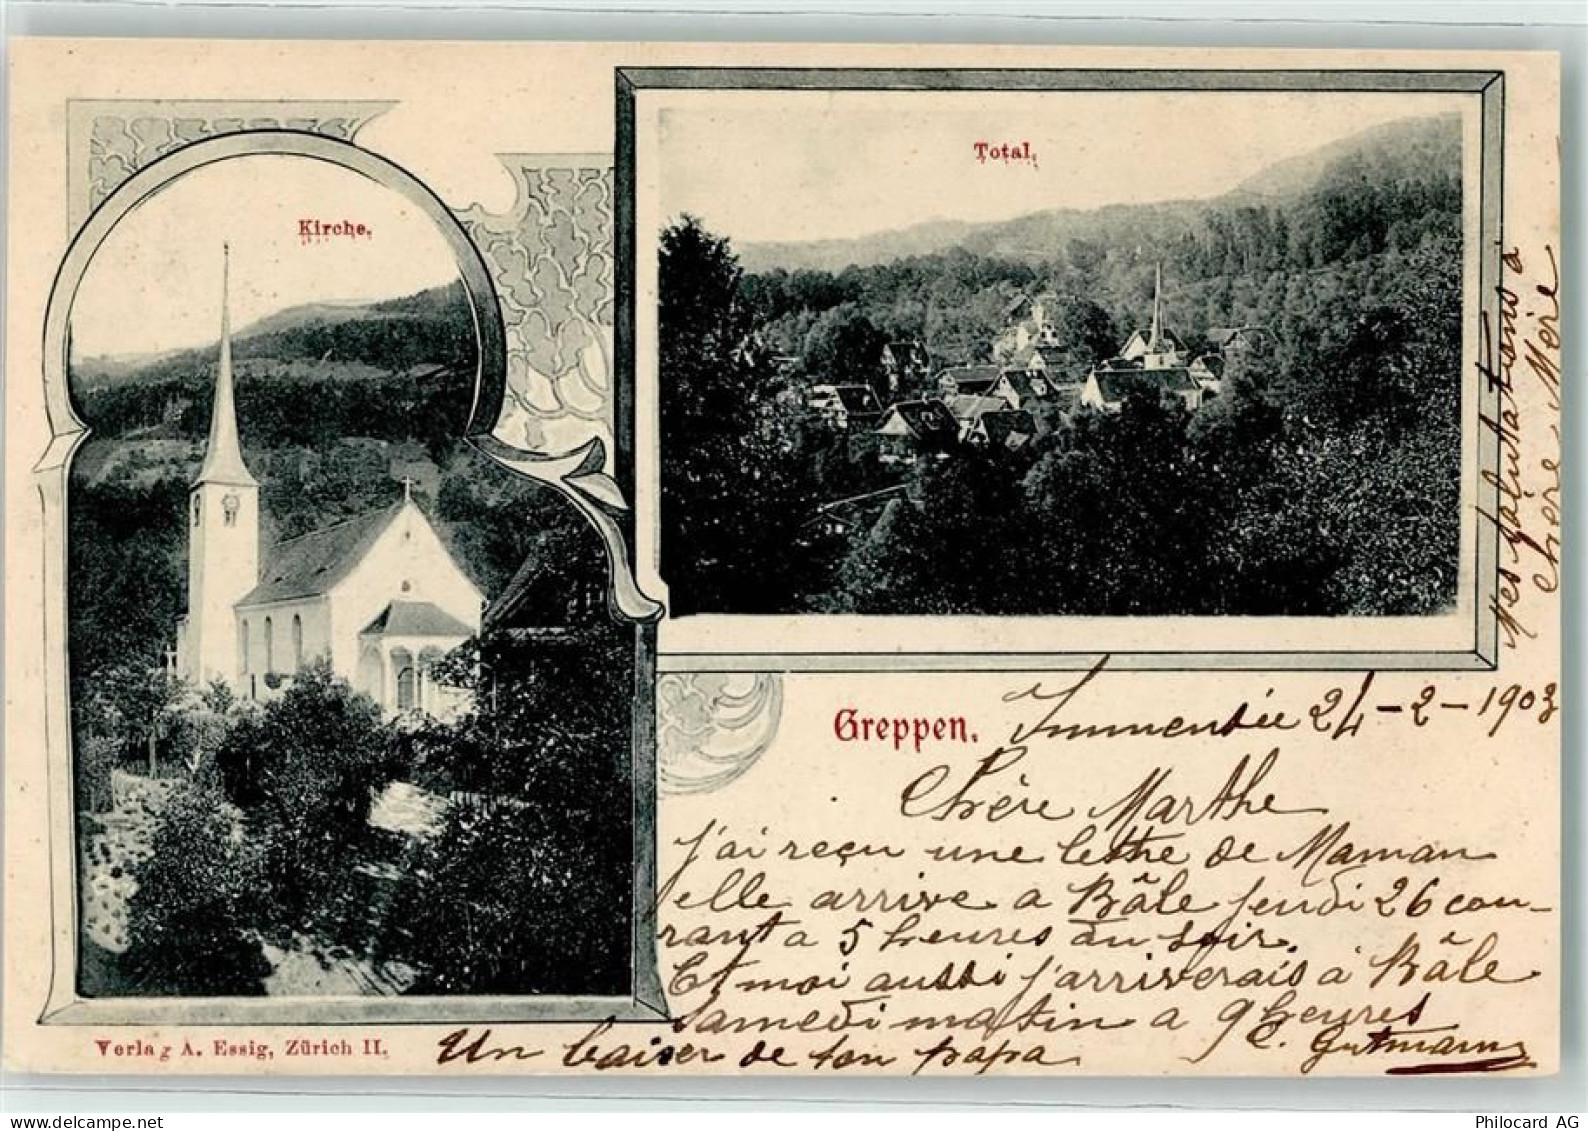 Kirche.
Total.
Greppen.
Immensée 24-2-1903
Chère Marthe
J'ai reçu une lettre de Maman
elle arrive a Bâle Jeudi 26 cou-
rant a 5 heures du soir.
Et moi aussi j'arriverais à Bâle
Samedi matin a 9 heures
C. Gutmann
Un baiser de ton papa.
Mes salutations a
chère Mère
Verlag A. Essig, Zürich II.
Philocard AG
www.delcampe.net